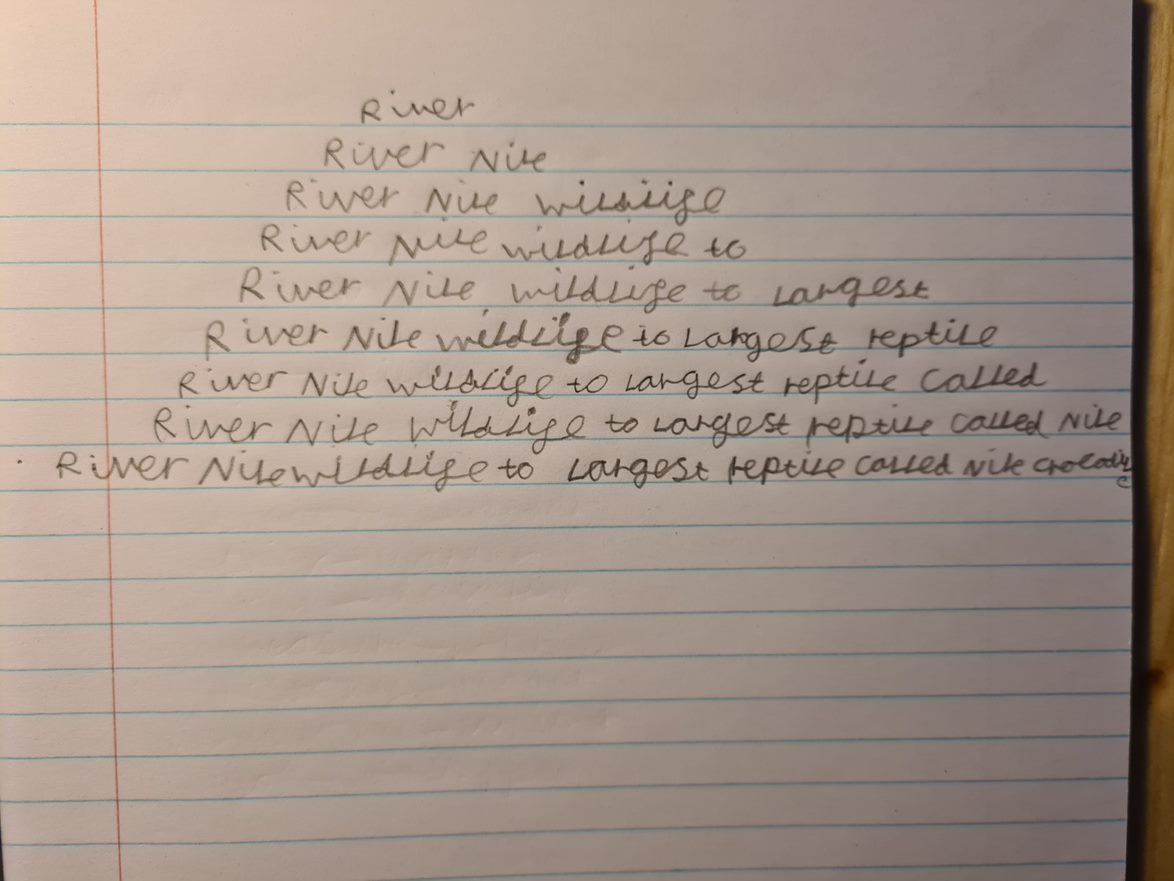 River
River Nile
River Nile wildlife
River Nile wildlife to
River Nile wildlife to largest
River Nile wildlife to largest reptile
River Nile wildlife to largest reptile called
River Nile wildlife to largest reptile called Nile
River Nile wildlife to largest reptile called Nile crocodile